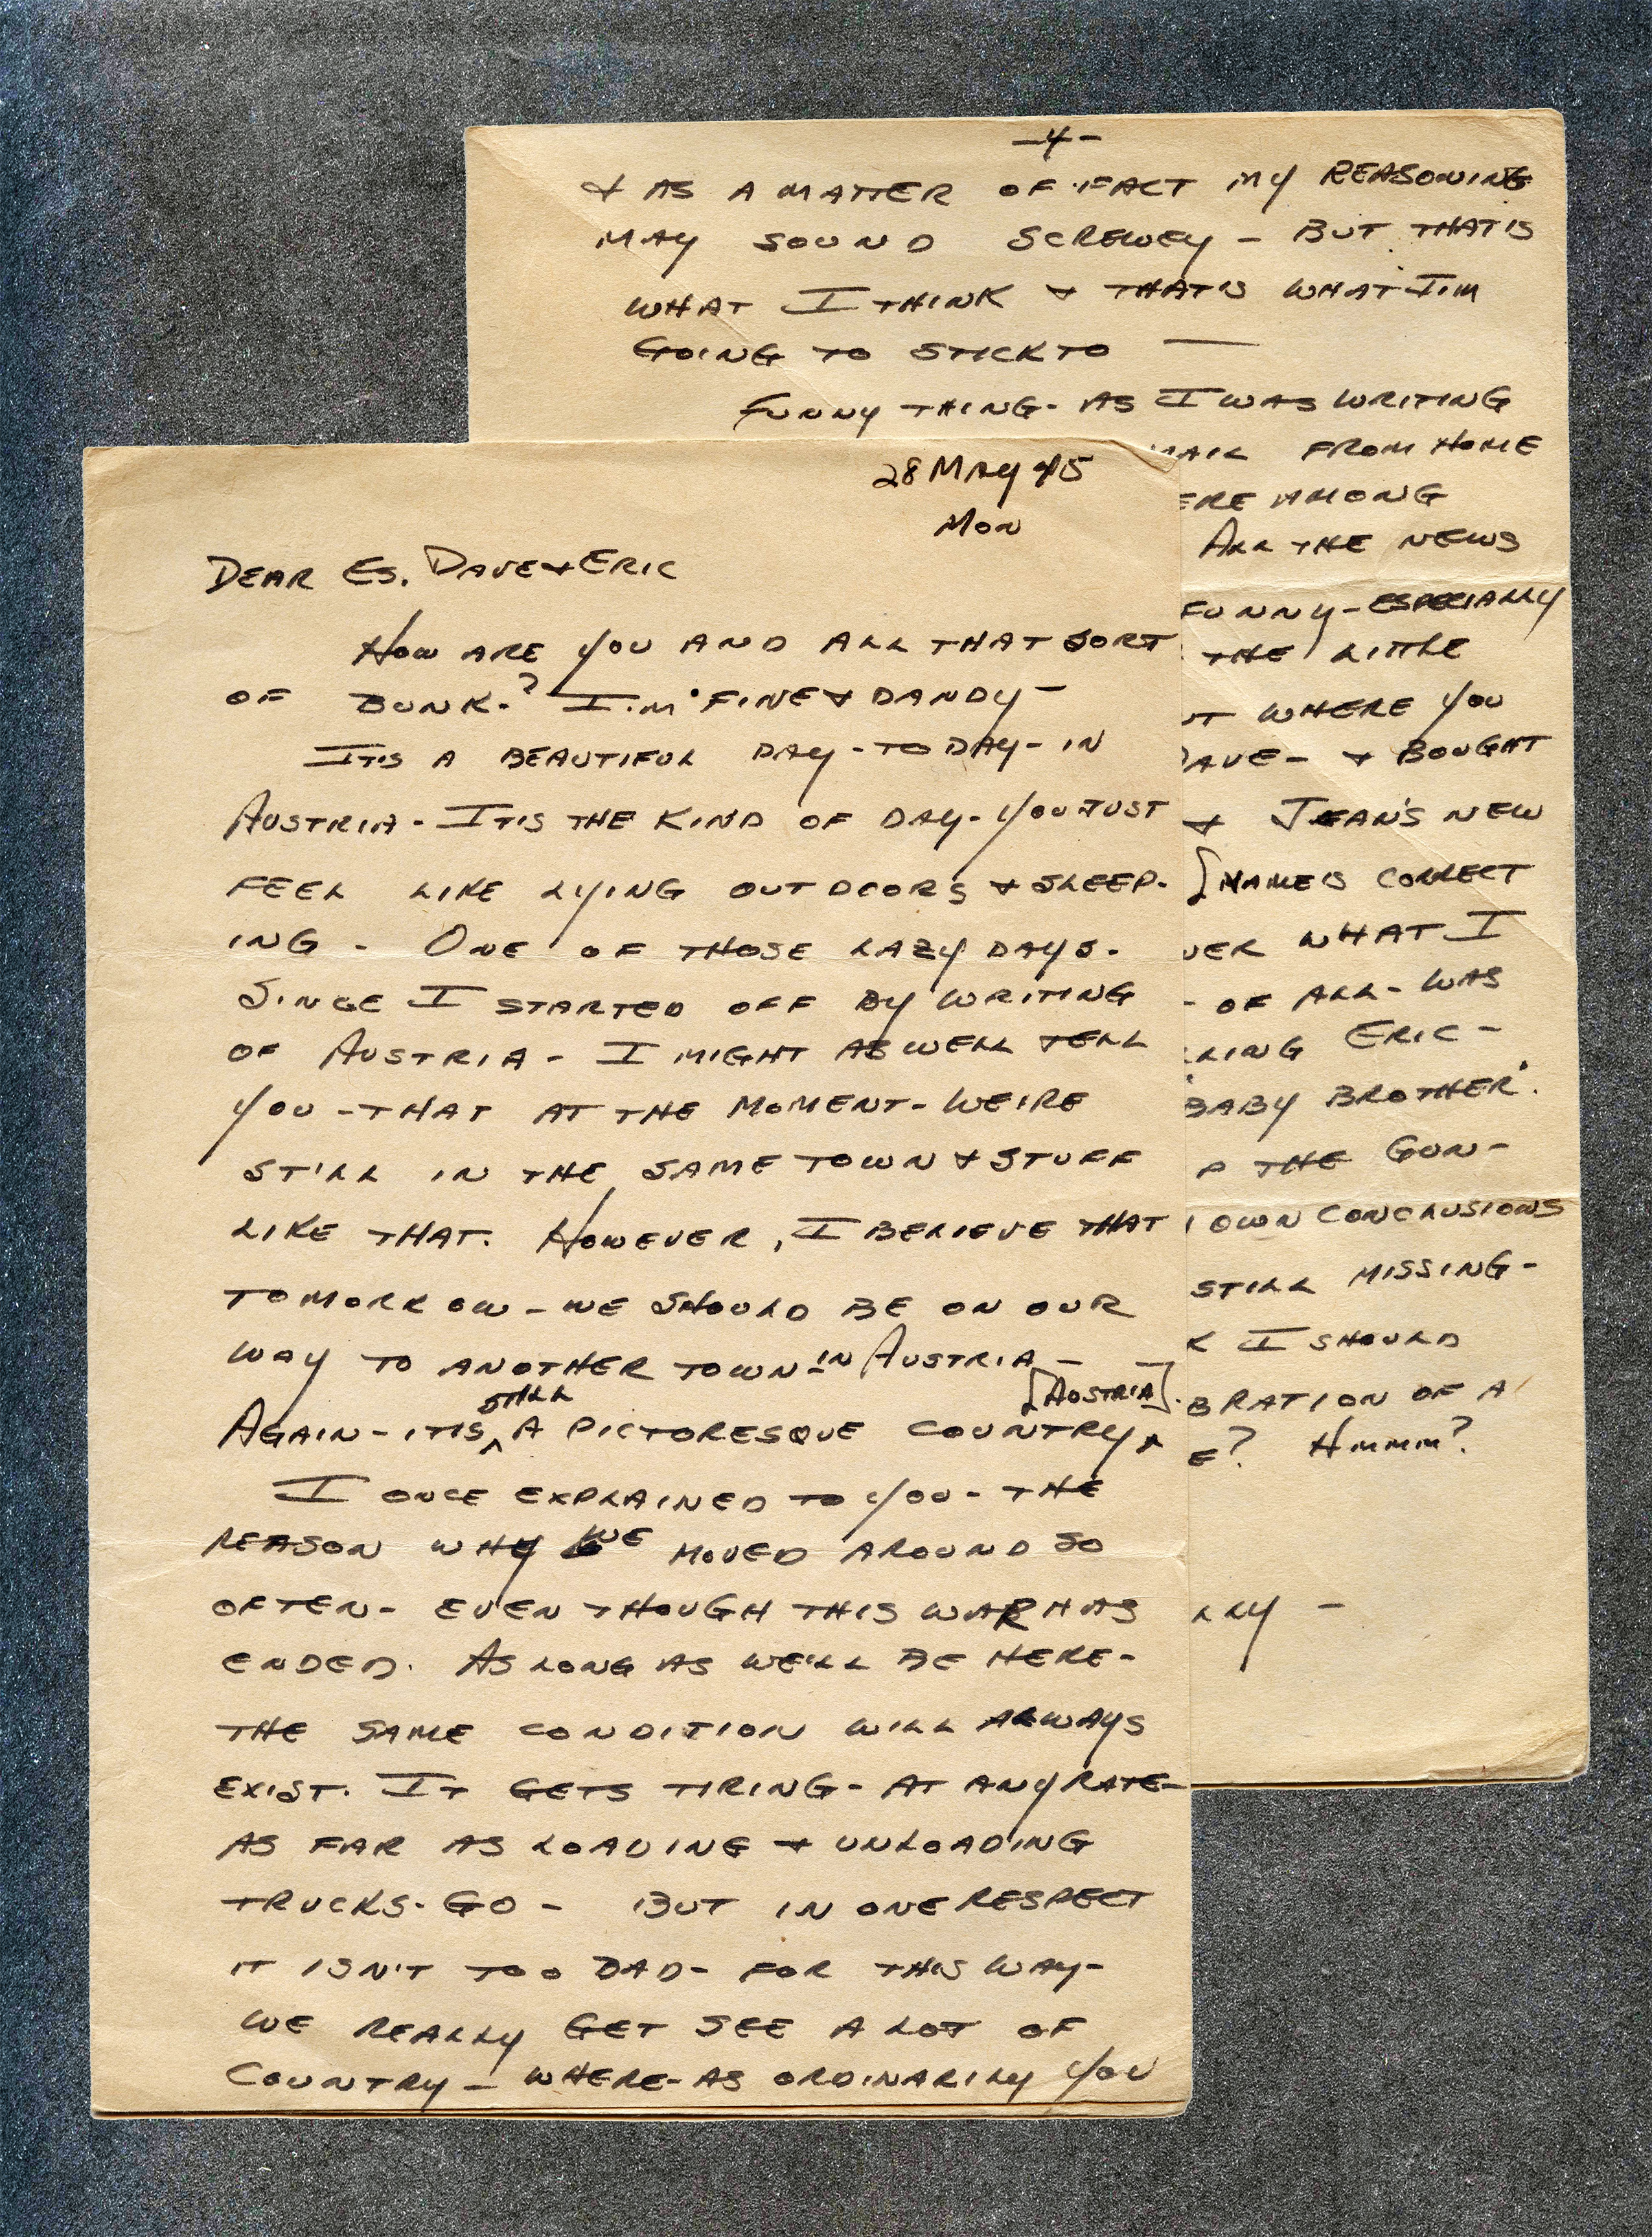 28 MAY 45
MON
DEAR ES. DAVE & ERIC
HOW ARE YOU AND ALL THAT SORT
OF BUNK-? I'M FINE & DANDY -
IT'S A BEAUTIFUL DAY - TODAY - IN
AUSTRIA - IT'S THE KIND OF DAY - YOU JUST
FEEL LIKE LYING OUTDOORS & SLEEP-
ING - ONE OF THOSE LAZY DAYS.
SINCE I STARTED OFF BY WRITING
OF AUSTRIA - I MIGHT AS WELL TELL
YOU - THAT AT THE MOMENT - WE'RE
STILL IN THE SAME TOWN & STUFF
LIKE THAT. HOWEVER, I BELIEVE THAT
TOMORROW - WE SHOULD BE ON OUR
WAY TO ANOTHER TOWN - IN AUSTRIA -
AGAIN - IT'S STILL A PICTURESQUE COUNTRY [AUSTRIA].
I ONCE EXPLAINED TO YOU - THE
REASON WHY WE MOVED AROUND SO
OFTEN - EVEN THOUGH THIS WAR HAS
ENDED. AS LONG AS WE'LL BE HERE -
THE SAME CONDITION WILL ALWAYS
EXIST. IT GETS TIRING - AT ANY RATE -
AS FAR AS LOADING & UNLOADING
TRUCKS - GO - BUT IN ONE RESPECT
IT ISN'T TOO BAD - FOR THIS WAY -
WE REALLY GET SEE A LOT OF
COUNTRY - WHERE-AS ORDINARILY YOU
-4-
& AS A MATTER OF FACT MY REASONING
MAY SOUND SCREWEY - BUT THAT'S
WHAT I THINK & THAT'S WHAT I'M
GOING TO STICK TO —
FUNNY THING - AS I WAS WRITING
FROM HOME
ERE AMONG
ALL THE NEWS
FUNNY - ESPECIALLY
THE LITTLE
UT WHERE YOU
DAVE - & BOUGHT
& JEAN'S NEW
[NAME IS CORRECT
VER WHAT I
- OF ALL - WAS
LLING ERIC -
'BABY BROTHER'.
P THE GUN -
OWN CONCLUSIONS
STILL MISSING -
K I SHOULD
BRATION OF A
E? HMMM?
LLY -